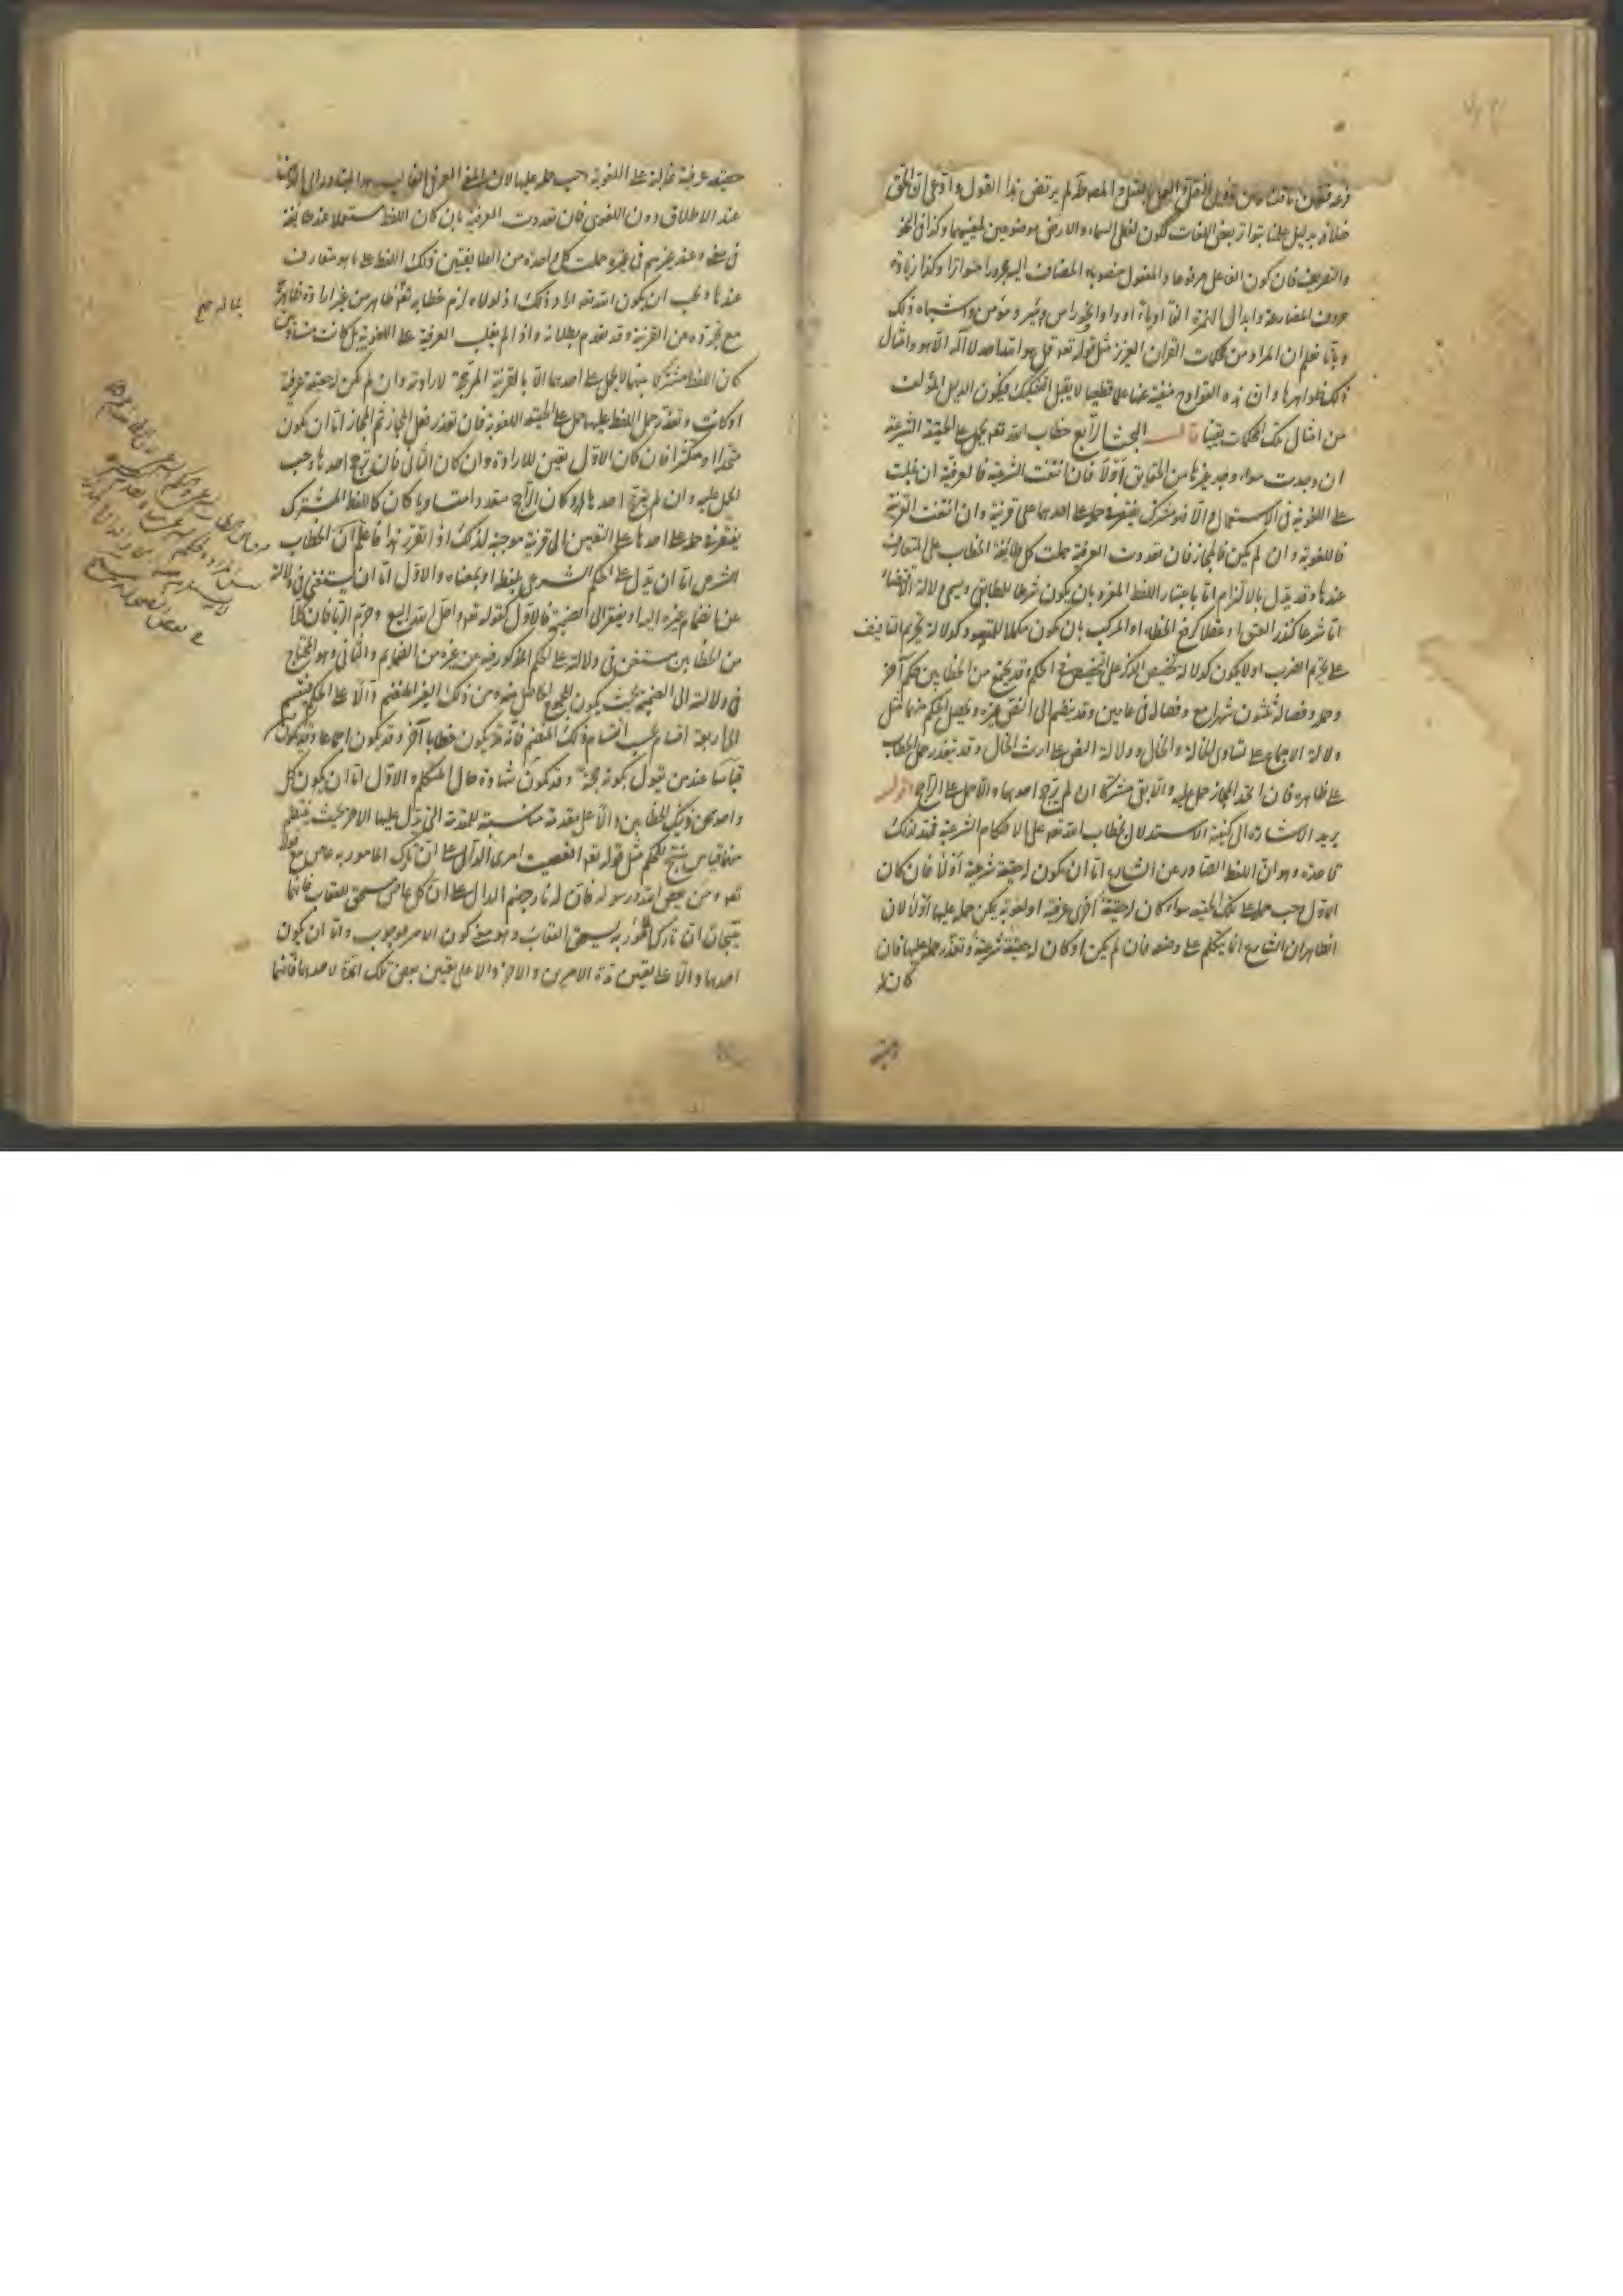 خلافه بدليل علمنا بتواتر بعض اللغات ككون لفظي السماء والارض موضوعين لمعنييهما وكذا في النحو
والتصريف فان كون الفاعل مرفوعا والمفعول منصوبا والمضاف اليه مجرورا متواتر وكذا زيادة
حروف المضارعة وابدال الهمزة الفا او ياء او واوا في نحو راس وبئر ومؤمن واشباه ذلك
وبانا نعلم ان المراد من محكمات القران العزيز مثل قوله تعه قل هو الله احد لا اله الا هو وامثال
ذلك ظواهرها وان هذه القوادح منفية عنها علما قطعيا لا يقبل التشكيك فيكون الدليل المؤلف
من امثال تلك المحكمات يقينيا قال البحث الرابع خطاب الله تعه يحمل على الحقيقة الشرعية
ان وجدت سواء وجد غيرها من الحقايق اولا فان انتفت الشرعية فالعرفية ان غلبت
على اللغوية في الاستعمال والا فهو مشترك يفتقر في حمله على احدهما على قرينة وان انتفت العرفية
فاللغوية وان لم يكن فالمجاز فان تعددت العرفية حملت كل طايفة الخطاب على المتعارف
عندها وقد يدل بالالتزام اما باعتبار اللفظ المفرد بان يكون شرطا للمطابقي ويسمى دلالة الاقتضاء
اما شرعا كنذر العتق او عقلا كرفع الخطاء او المركب بان يكون مكملا للمفهوم كدلالة تحريم التافيف
على تحريم الضرب او لا يكون كدلالة تخصيص الذكر على تخصيص الحكم وقد يجتمع من الخطابين حكم آخر
وحمله وفصاله ثلثون شهرا مع وفصاله في عامين وقد ينضم الى النص غيره ويحصل الحكم منهما مثل
دلالة الاجماع على تساوي الخالة والخال ودلالة النص على ارث الخال وقد يتعذر حمل الخطاب
على ظاهره فان اتحد المجاز حمل عليه والا بقي مشتركا ان لم يترجح احدهما والا حمل على الراجح اقول
يريد الاشارة الى كيفية الاستدلال بخطاب الله تعه على الاحكام الشرعية فمهد لذلك
قاعدة وهو ان اللفظ الصادر عن الشارع اما ان يكون له حقيقة شرعية اولا فان كان
الاول وجب حمله على تلك الحقيقة سواء كان له حقيقة اخرى عرفية او لغوية يمكن حمله عليها اولا لان
الظاهر ان الشارع انما يتكلم على وضعه فان لم يكن او كان له حقيقة شرعية وتعذر حمله عليها فان
كان له
حقيقة عرفية غالبة على اللغوية وجب حمله عليها لان المعنى العرفي الغالب هو المتبادر الى الذهن
عند الاطلاق دون اللغوي فان تعددت العرفية بان كان اللفظ مستعملا عند طائفة
في معنى وعند غيرهم في غيره حملت كل واحدة من الطايفتين ذلك اللفظ على ما هو متعارف
عندها ويجب ان يكون الله تعه اراد ذلك اذ لولاه لزم خطابه تعه بما له ظاهر من غير ارادة ظاهره
مع تجرده عن القرينة وقد تقدم بطلانه واذا لم يغلب العرفية على اللغوية بل كانت متساوية
كان اللفظ مشتركا بينهما لا يحمل على احدهما الا بالقرينة المرجحة لارادته وان لم يكن له حقيقة عرفية
او كانت وتعذر حمل اللفظ عليها حمل على الحقيقة اللغوية فان تعذر فعلى المجاز ثم المجاز اما ان يكون
متحدا او متكثرا فان كان الاول تعين للارادة وان كان الثاني فان ترجح احدها وجب
الحمل عليه وان لم يترجح احدها او كان الراجح متعددا متساويا كان كاللفظ المشترك
يفتقر في حمله على احدها على التعيين الى قرينة موجبة لذلك اذا تقرر هذا فاعلم ان الخطاب
الشرعي اما ان يدل على الحكم الشرعي بلفظه او بمعناه والاول اما ان يستغني في دلالته
عن انضمام غيره اليه او يفتقر الى الضميمة فالاول كقوله تعه واحل الله البيع وحرم الربا فان كلا
من الخطابين مستغن في دلالته على الحكم المذكور فيه عن غيره من الضمايم والثاني وهو المحتاج
في دلالته الى الضميمة بحيث يكون المجموع الحاصل منه ومن ذلك الغير المنضم دالا على الحكم فينقسم
الى اربعة اقسام بحسب انقسام ذلك المنضم فانه قد يكون خطابا آخر وقد يكون اجماعا وقد يكون
قياسا عند من يقول بكونه حجة وقد يكون شهادة حال المتكلم الاول اما ان يكون كل
واحد من ذينك الخطابين دالا على مقدمة مناسبة للمقدمة التي يدل عليها الاخر بحيث ينتظم
منهما قياس ينتج للحكم مثل قوله تعه افعصيت امري الدال على ان تارك المامور به عاص مع قوله
تعه ومن يعص الله ورسوله فان له نار جهنم الدال على ان كل عاص مستحق للعقاب فانهما
ينتجان ان تارك المامور به يستحق العقاب وهو معنى كون الامر للوجوب واما ان يكون
احدهما دالا على تعيين مدة الامرين والاخر دالا على تعيين بعض تلك المدة لاحدهما فانهما
بما له صح